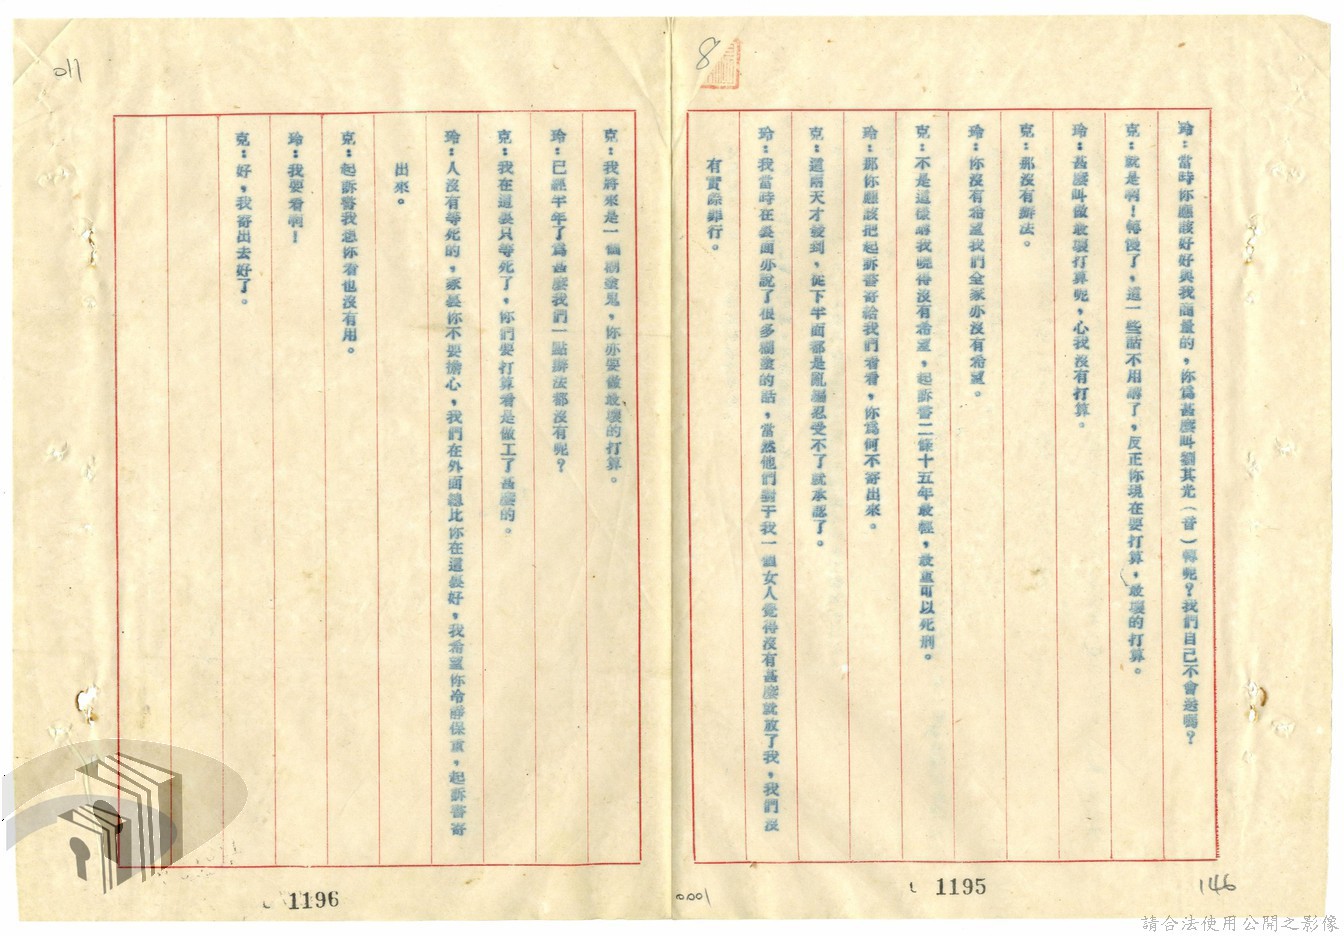 8
玲：當時你應該好好與我商量的，你爲甚麼叫劉其光（音）轉呢？我們自己不會送嗎？
克：就是啊！轉慢了，這一些話不用講了，反正你現在要打算，最壞的打算。
玲：甚麼叫做最壞打算呢，心我沒有打算。
克：那沒有辦法。
玲：你沒有希望我們全家亦沒有希望。
克：不是這樣講我曉得沒有希望，起訴書二條十五年最輕，最重可以死刑。
玲：那你應該把起訴書寄給我們看看，你爲何不寄出來。
克：這兩天才接到，從下半面都是亂編忍受不了就承認了。
玲：我當時在裏面亦說了很多糊塗的話，當然他們對于我一個女人覺得沒有甚麼就放了我，我們沒
有實際罪行。
1195
146
0001
011
克：我將來是一個糊塗鬼，你亦要做最壞的打算。
玲：已經半年了爲甚麼我們一點辦法都沒有呢？
克：我在這裏只等死了，你們要打算看是做工了甚麼的。
玲：人沒有等死的，家裏你不要擔心，我們在外面總比你在這裏好，我希望你冷靜保重，起訴書寄
出來。
克：起訴書我想你看也沒有用。
玲：我要看啊！
克：好，我寄出去好了。
1196
請合法使用公開之影像